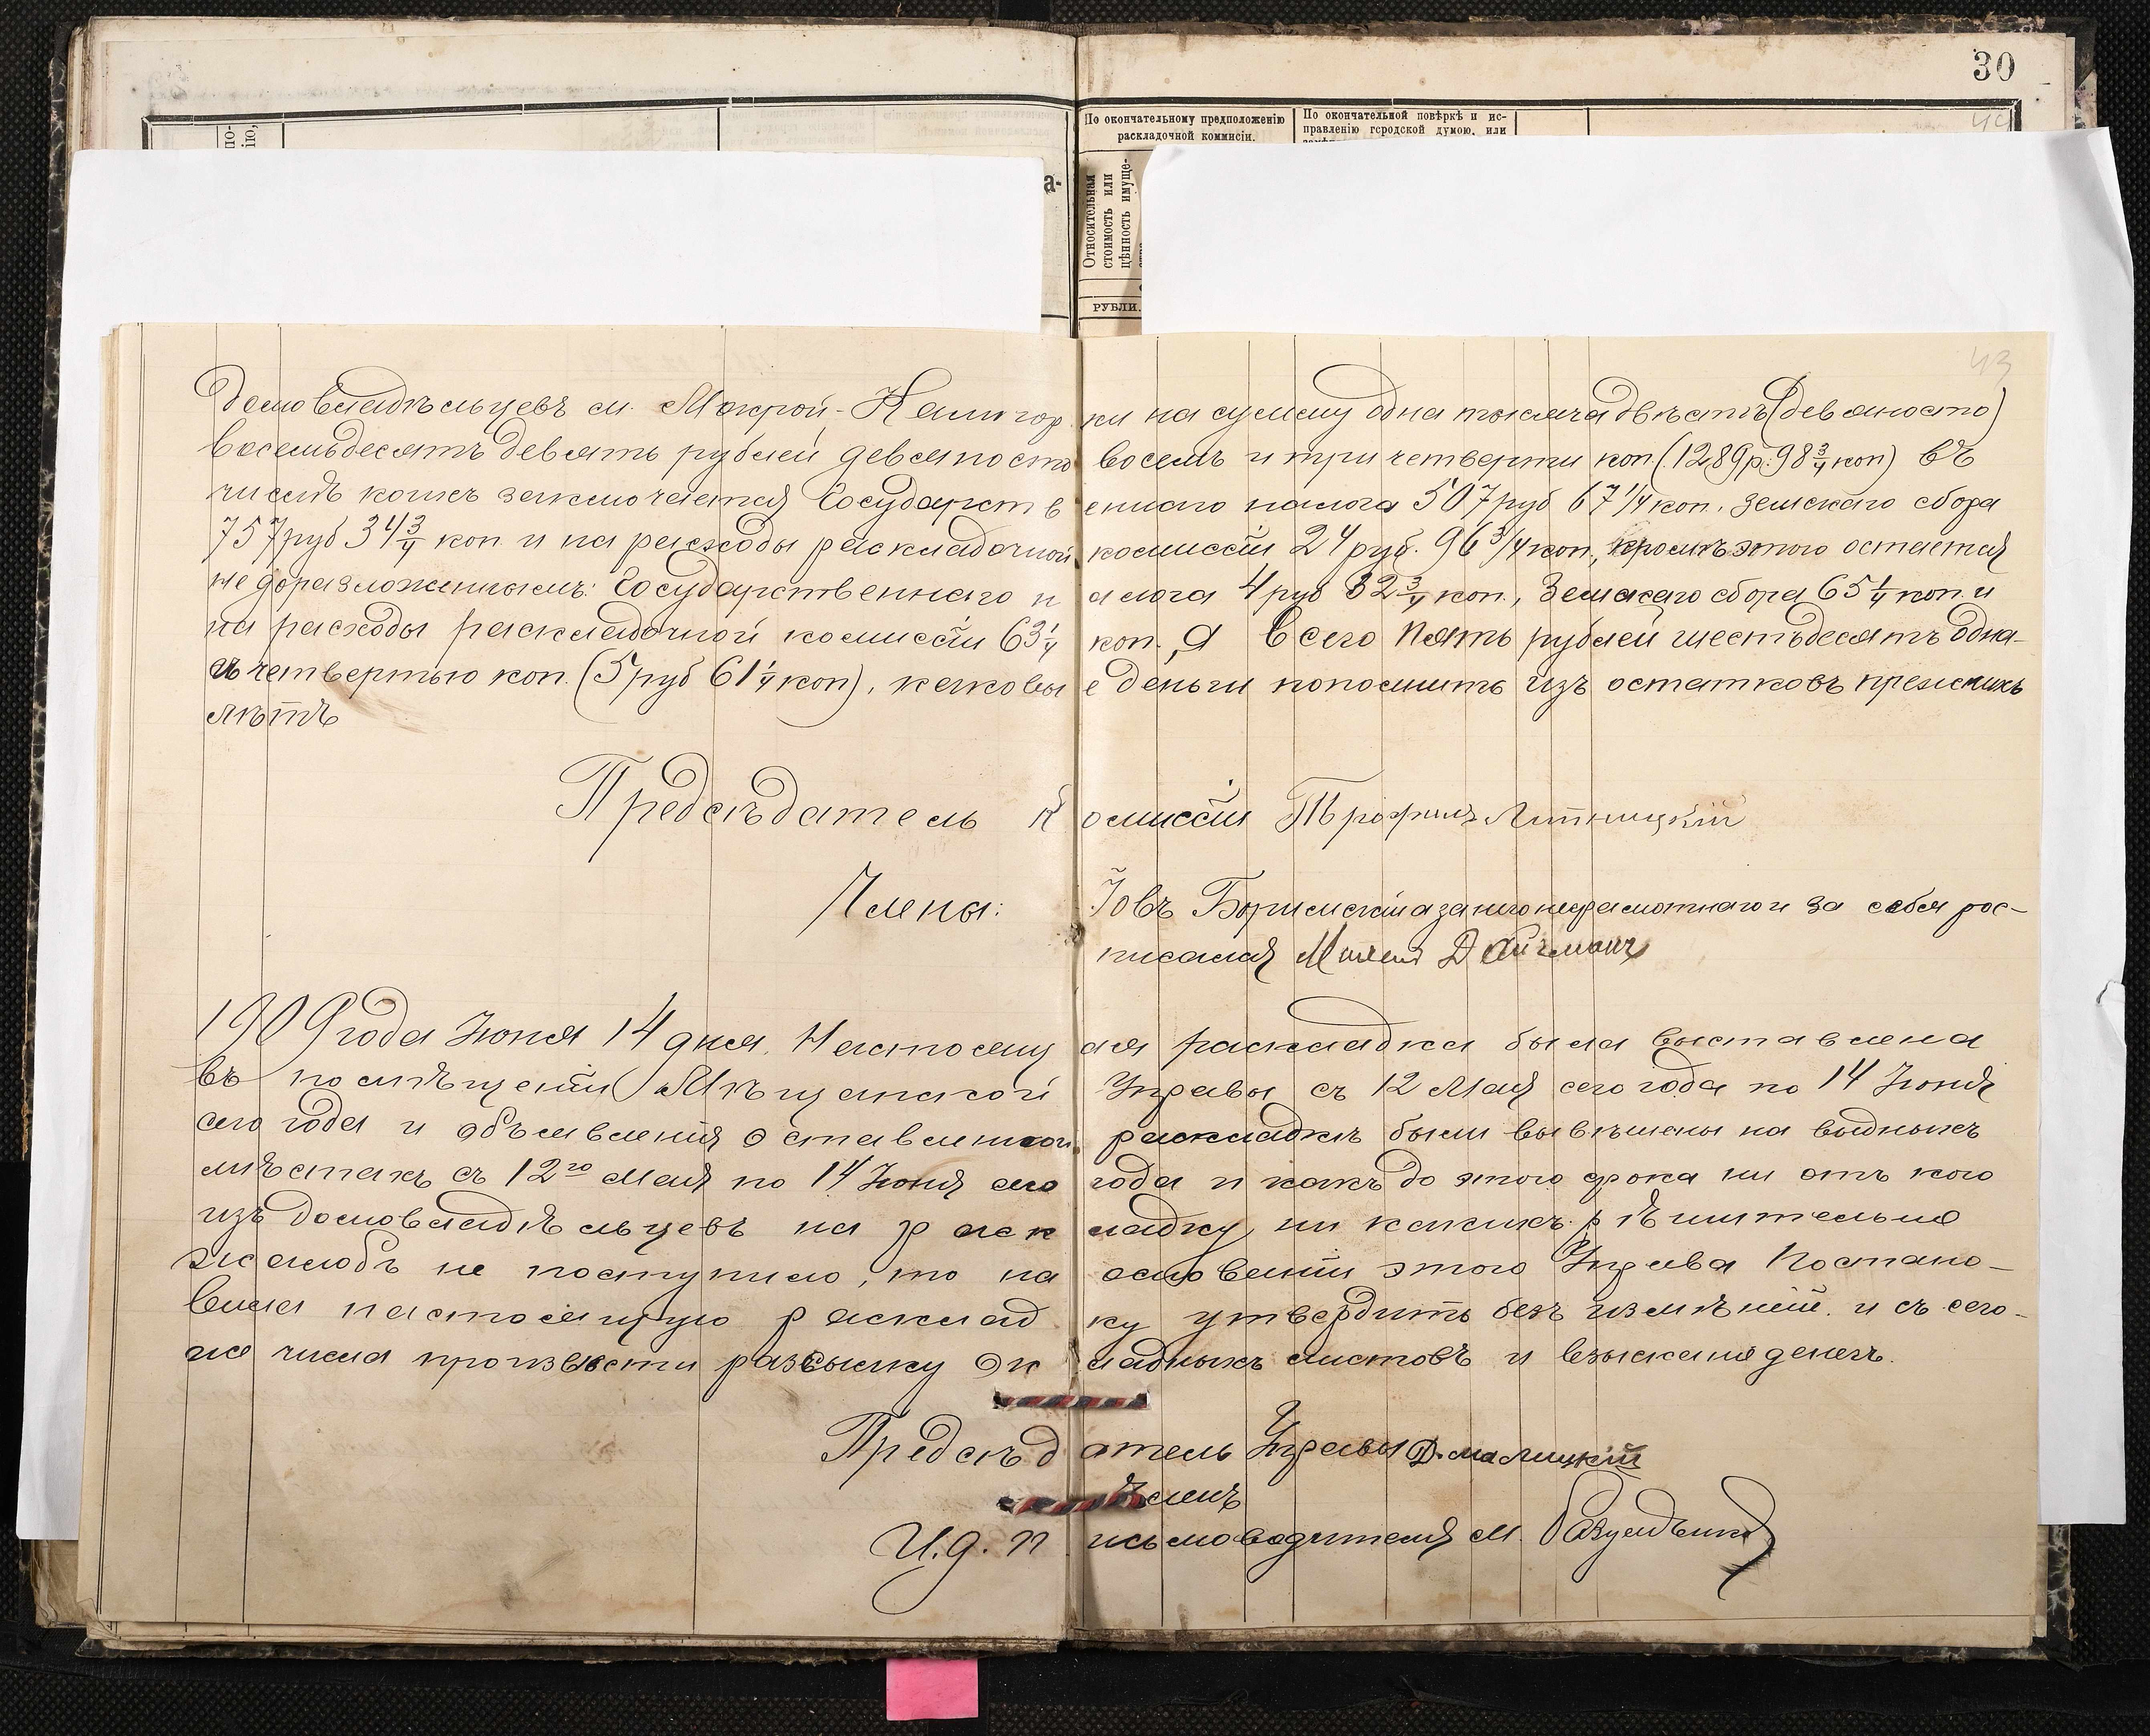 30
По окончательному предположенію
раскладочной коммисіи.
По окончательной повѣркѣ и ис-
правленію городской думою, или
Относительная
стоимость или
цѣнность имуще-
РУБЛИ.
43
домовладѣльцевъ м. Мокрой-Калигорки на сумму одна тысяча двѣсти (девяносто)
восемьдесятъ девять рублей девяносто восемь и три четверти коп. (1289 р. 98 3/4 коп) въ
числѣ коихъ заключается Государственного налога 507 руб 67 1/4 коп. земскаго сбора
757 руб 34 3/4 коп и на расходы раскладочной комиссіи 24 руб. 96 3/4 коп, кромѣ этого остается
не доразложеннымъ: Государственнаго налога 4 руб 32 3/4 коп., Земскаго сбора 65 1/4 коп и
на расходы раскладочной комиссіи 63 1/4 коп., а всего пять рублей шестьдесятъ одна
съ четвертью коп. (5 руб 61 1/4 коп), каковые деньги пополнить изъ остатковъ прежнихъ
лѣтъ
Предсѣдатель Комиссіи Трофимъ Липницкій
Члены: Іовъ а за него неграмотнаго и за себя рос-
писался
1909 года Іюня 14 дня. Настоящая раскладка была выставлена
въ помѣщеніи Мѣщанской Управы съ 12 Мая сего года по 14 Іюня
сего года и объявленія о ставленной раскладкѣ были вывѣшены на видныхъ
мѣстахъ съ 12го Мая по 14 Іюня сего года и какъ до этого срока ни отъ кого
изъ домовладѣльцевъ на раскладку ни какихъ рѣшительно
жалобъ не поступило, то на основеніи этого Управа Постано-
вила настоящую раскладку утвердить безъ измѣнній и съ сего-
же числа произвести разсылку окладныхъ листовъ и взысканіе денегъ.
Предсѣдатель Управы Д. Малицкій
Членъ
И. д. письмоводителя М.